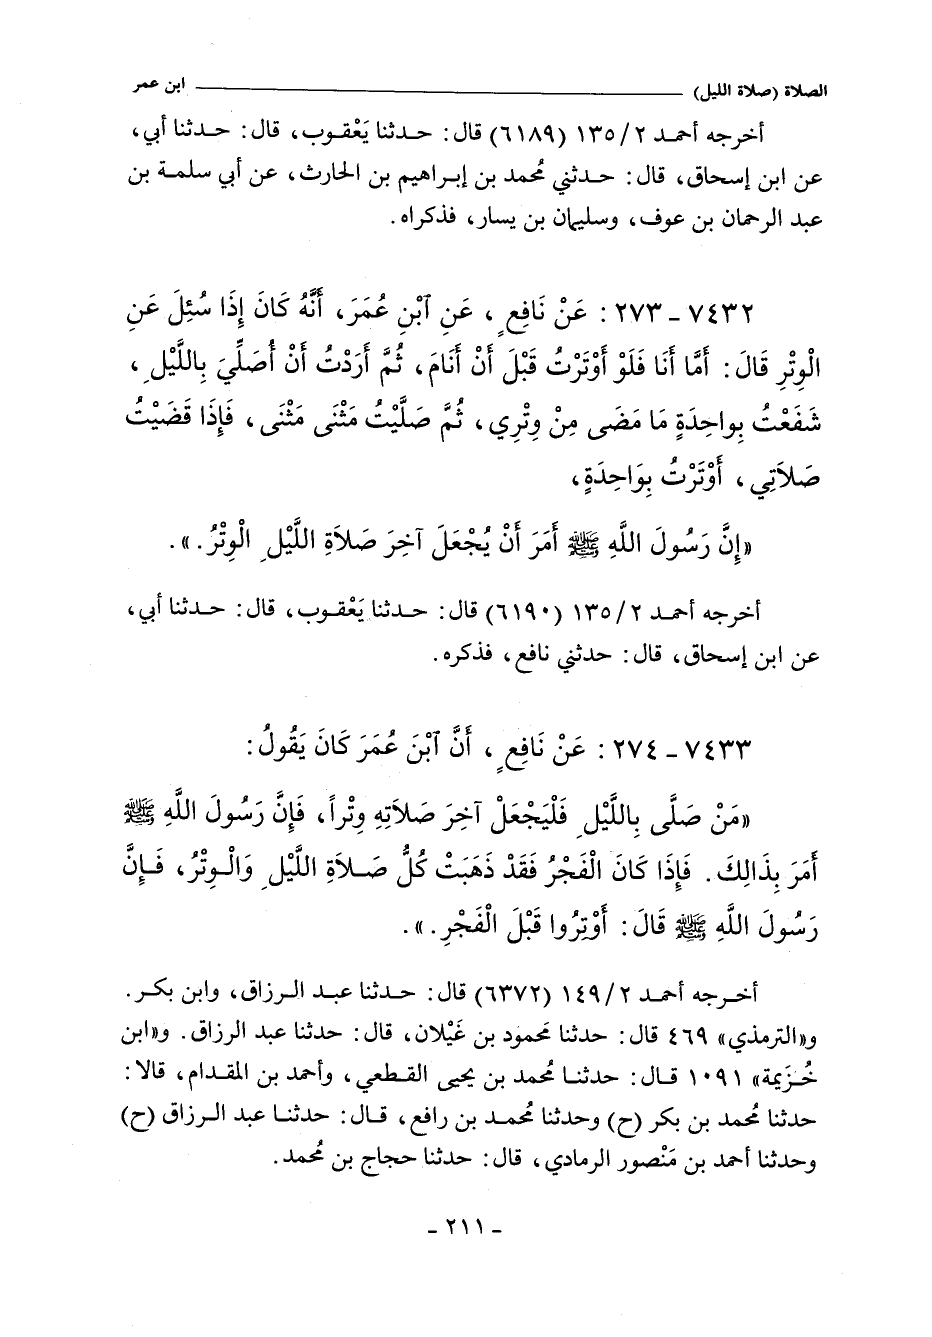 الصلاة (صلاة الليل) ــــــــــــــــــــ ابن عمر
أخرجه أحمد ٢/ ١٣٥ (٦١٨٩) قال: حدثنا يَعْقوب، قال: حدثنا أبي،
عن ابن إسحاق، قال: حدثني مُحمد بن إبراهيم بن الحارث، عن أبي سلمة بن
عبد الرحمان بن عوف، وسليمان بن يسار، فذكراه.
٧٤٣٢ ـ ٢٧٣: عَنْ نَافِعٍ، عَنِ ٱبْنِ عُمَرَ، أَنَّهُ كَانَ إِذَا سُئِلَ عَنِ
الْوِتْرِ قَالَ: أَمَّا أَنَا فَلَوْ أَوْتَرْتُ قَبْلَ أَنْ أَنَامَ، ثُمَّ أَرَدْتُ أَنْ أُصَلِّيَ بِاللَّيْلِ،
شَفَعْتُ بِواحِدَةٍ مَا مَضَى مِنْ وِتْرِي، ثُمَّ صَلَّيْتُ مَثْنَى مَثْنَى، فَإِذَا قَضَيْتُ
صَلاَتِي، أَوْتَرْتُ بِوَاحِدَةٍ،
«إِنَّ رَسُولَ اللَّهِ ﷺ أَمَرَ أَنْ يُجْعَلَ آخِرَ صَلاَةِ اللَّيْلِ الْوِتْرُ.».
أخرجه أحمد ٢/ ١٣٥ (٦١٩٠) قال: حدثنا يَعْقوب، قال: حدثنا أبي،
عن ابن إسحاق، قال: حدثني نافع، فذكره.
٧٤٣٣ ـ ٢٧٤: عَنْ نَافِعٍ، أَنَّ ٱبْنَ عُمَرَ كَانَ يَقُولُ:
«مَنْ صَلَّى بِاللَّيْلِ فَلْيَجْعَلْ آخِرَ صَلاَتِهِ وِتْراً، فَإِنَّ رَسُولَ اللَّهِ ﷺ
أَمَرَ بِذَالِكَ. فَإِذَا كَانَ الْفَجْرُ فَقَدْ ذَهَبَتْ كُلُّ صَلاَةِ اللَّيْلِ وَالْوِتْرُ، فَإِنَّ
رَسُولَ اللَّهِ ﷺ قَالَ: أَوْتِرُوا قَبْلَ الْفَجْرِ.».
أخرجه أحمد ٢/ ١٤٩ (٦٣٧٢) قال: حدثنا عبد الرزاق، وابن بكر.
و«الترمذي» ٤٦٩ قال: حدثنا محمود بن غَيْلان، قال: حدثنا عبد الرزاق. و«ابن
خُزَيمة» ١٠٩١ قال: حدثنا مُحمد بن يحيى القطعي، وأحمد بن المقدام، قالا:
حدثنا مُحمد بن بكر (ح) وحدثنا مُحمد بن رافع، قال: حدثنا عبد الرزاق (ح)
وحدثنا أحمد بن مَنْصور الرمادي، قال: حدثنا حجاج بن مُحمد.
- ٢١١ -